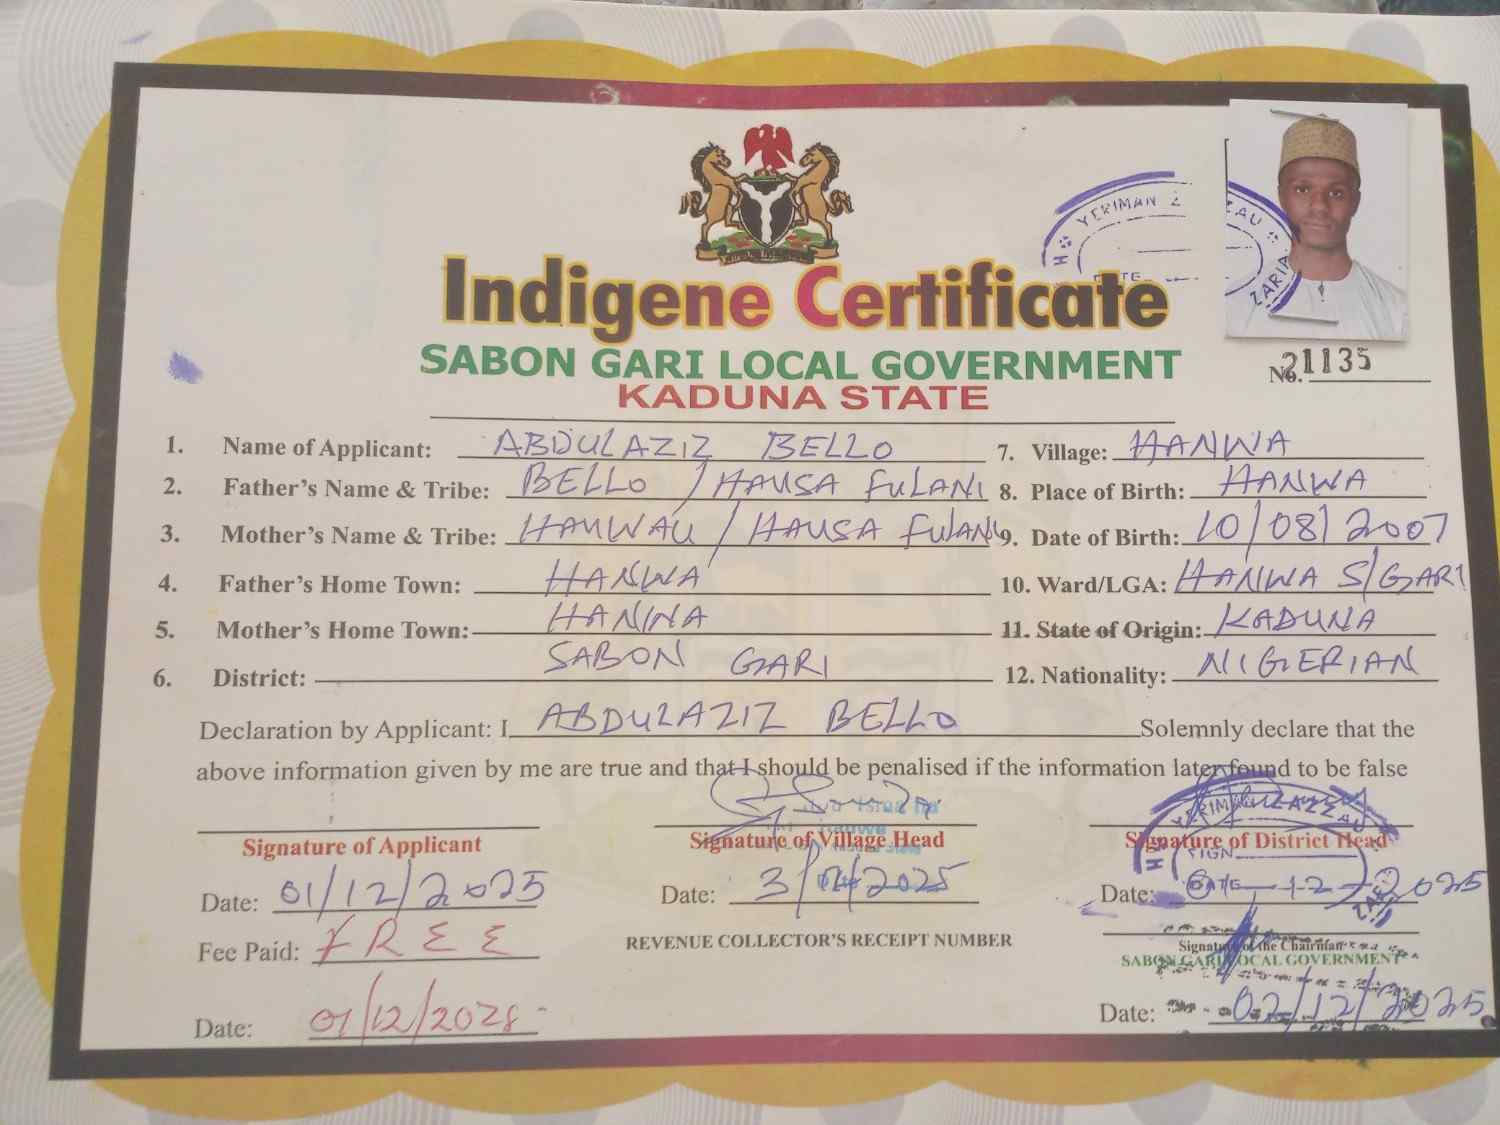 YERIMAN Z
EAU
ZARIA
Indigene Certificate
SABON GARI LOCAL GOVERNMENT
KADUNA STATE
No. 21135
1. Name of Applicant: ABDULAZIZ BELLO
7. Village: HANWA
2. Father's Name & Tribe: BELLO / HAUSA FULANI
8. Place of Birth: HANWA
3. Mother's Name & Tribe: HAUWAU / HAUSA FULANI
9. Date of Birth: 10/08/2007
4. Father's Home Town: HANWA
10. Ward/LGA: HANWA S/GARI
5. Mother's Home Town: HANWA
11. State of Origin: KADUNA
6. District: SABON GARI
12. Nationality: NIGERIAN
Declaration by Applicant: I ABDULAZIZ BELLO Solemnly declare that the
above information given by me are true and that I should be penalised if the information later found to be false
Signature of Applicant
Signature of Village Head
Signature of District Head
SIGN
DATE
Date: 01/12/2025
Date: 3/12/2025
Date: 12-2025
Fee Paid: FREE
REVENUE COLLECTOR'S RECEIPT NUMBER
Signature of the Chairman
SABON GARI LOCAL GOVERNMENT
Date: 01/12/2025
Date: 02/12/2025